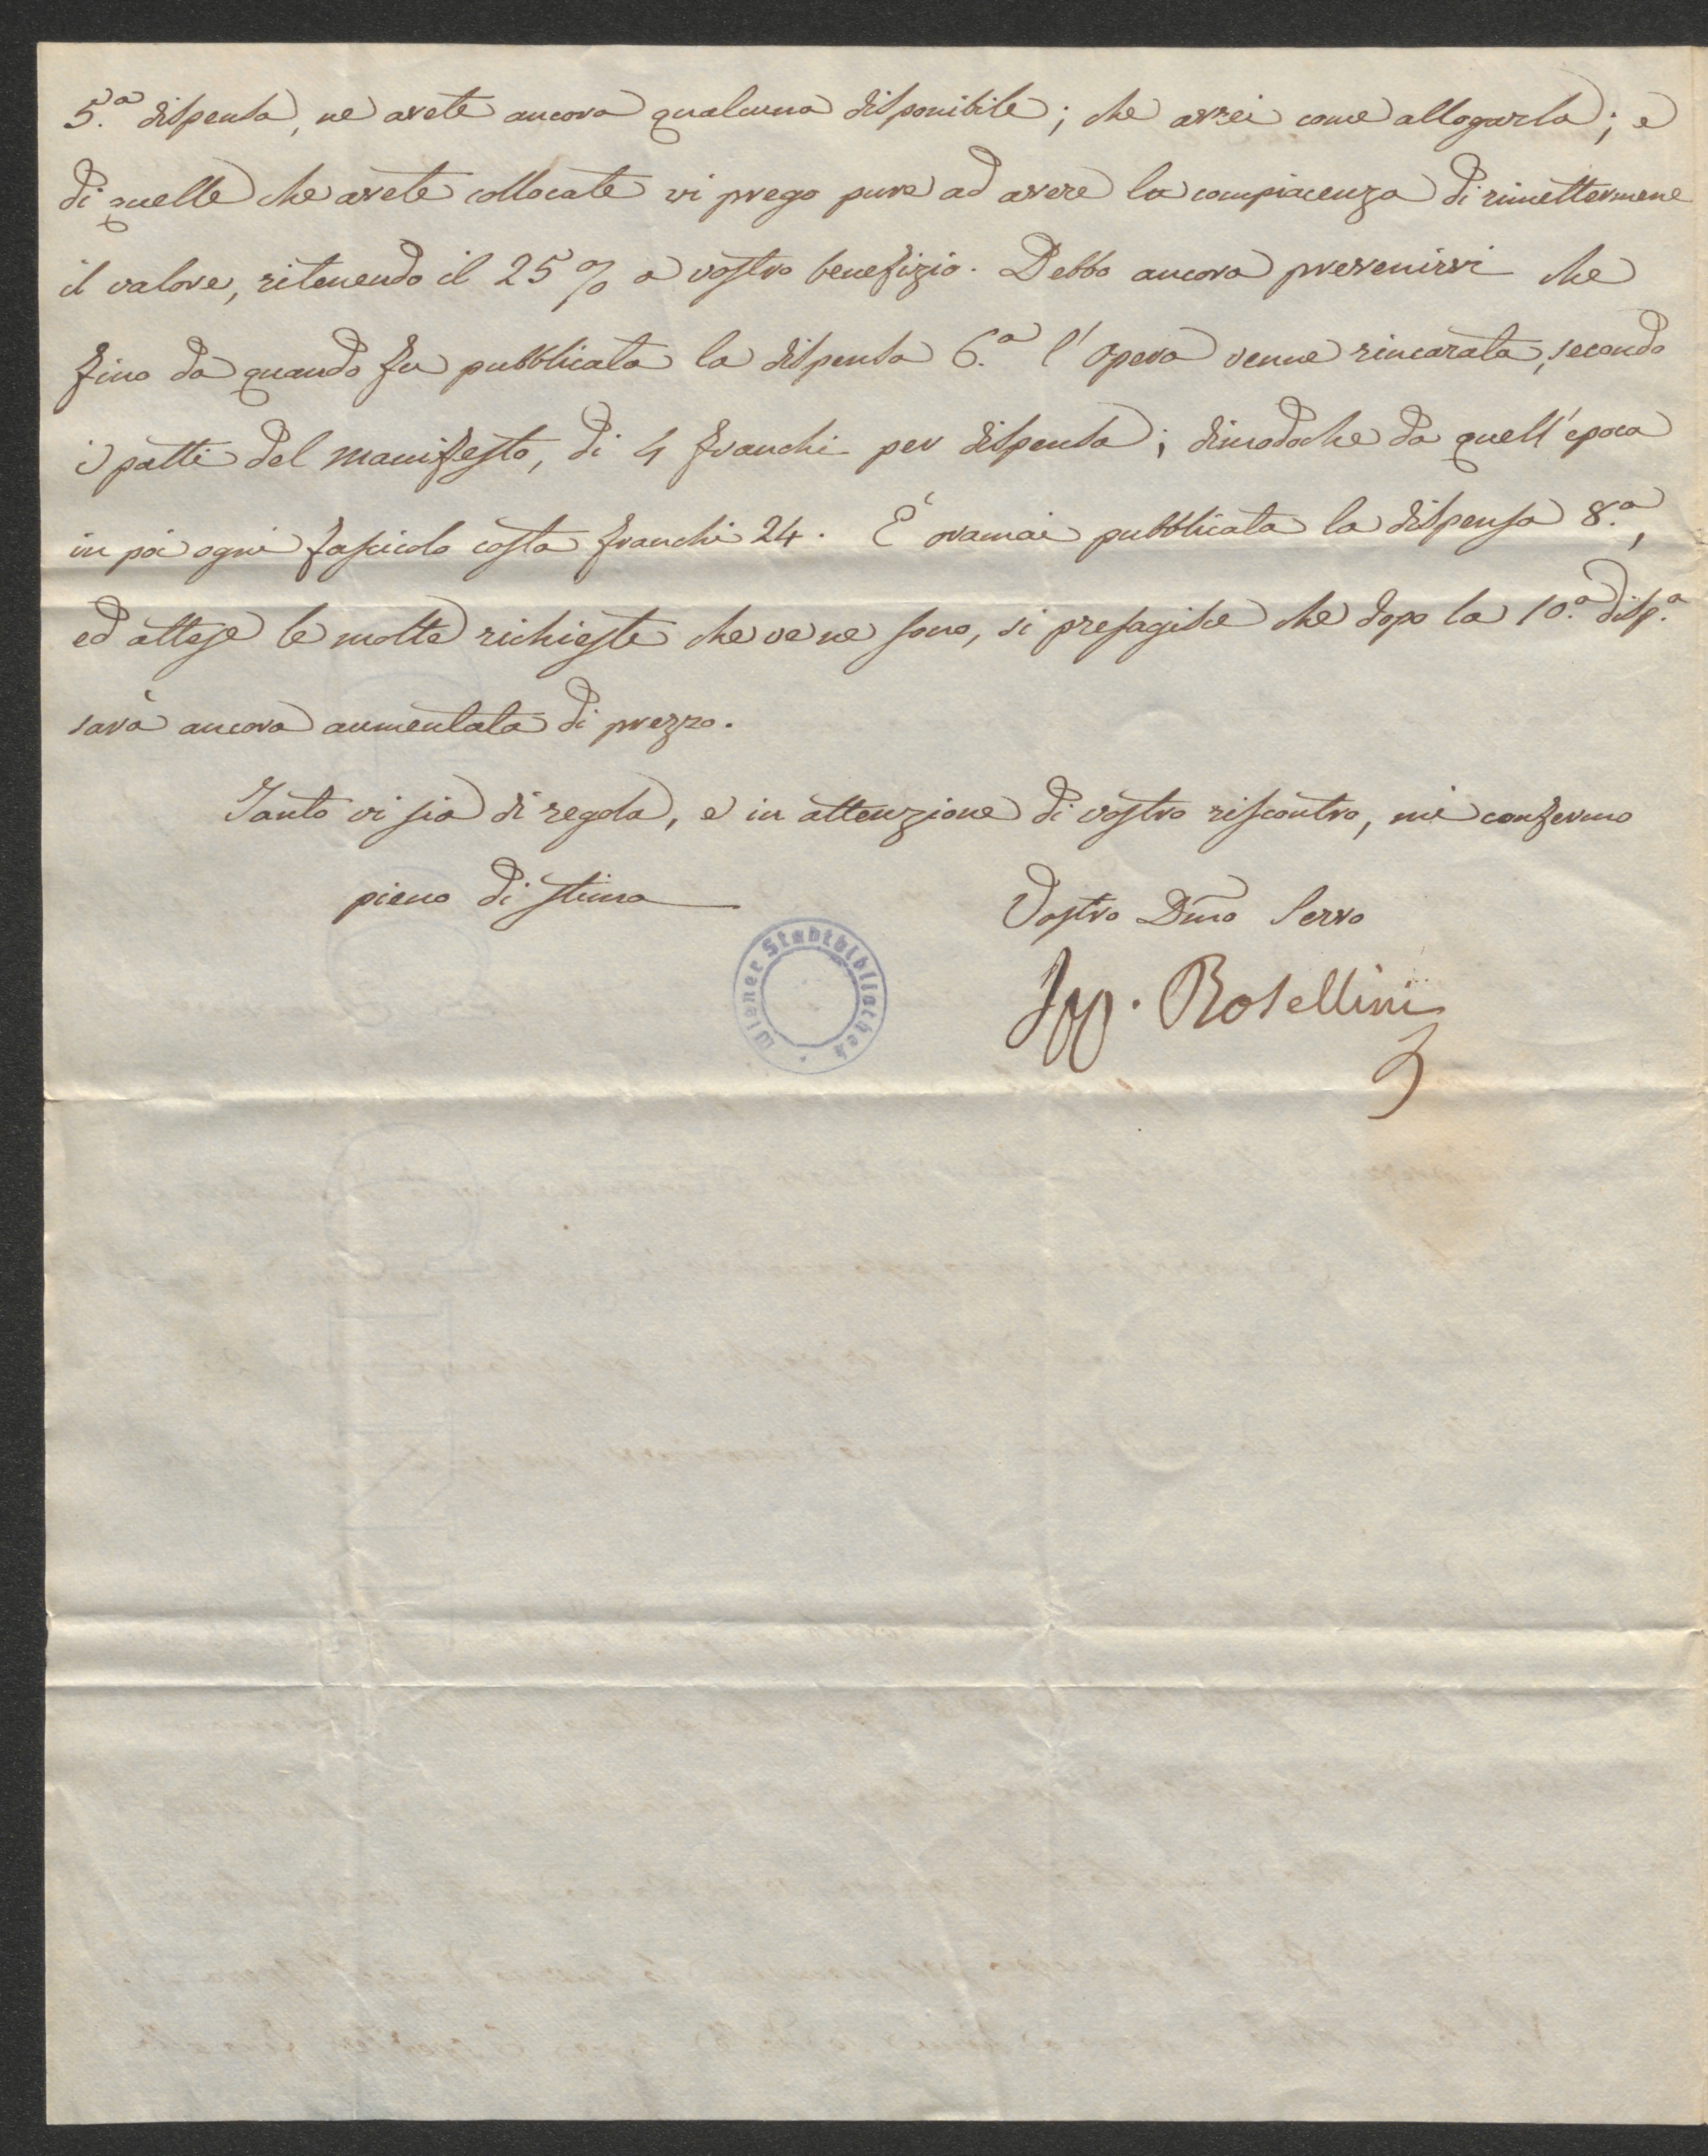 5.ª dispensa, ne avete ancora qualcuna disponibile; che avrei come allogarla; e
di quelle che avete collocate vi prego pure ad avere la compiacenza di rimettermene
il valore, ritenendo il 25 % a vostro benefizio. Debbo ancora prevenirvi che
fino da quando fu pubblicata la dispensa 6.ª l'Opera venne rincarata, secondo
i patti del manifesto, di 4 franchi per dispensa; dimodoche da quell'epoca
in poi ogni fascicolo costa franchi 24. È oramai pubblicata la dispensa 8.ª,
ed attese le molte richieste che ve ne sono, si presagisce che dopo la 10.ª disp.ª
sarà ancora aumentata di prezzo.
Tanto vi sia di regola, e in attenzione di vostro riscontro, mi confermo
pieno di stima
Vostro Dmo Servo
Ipp. Rosellini
Wiener Stadtbibliothek